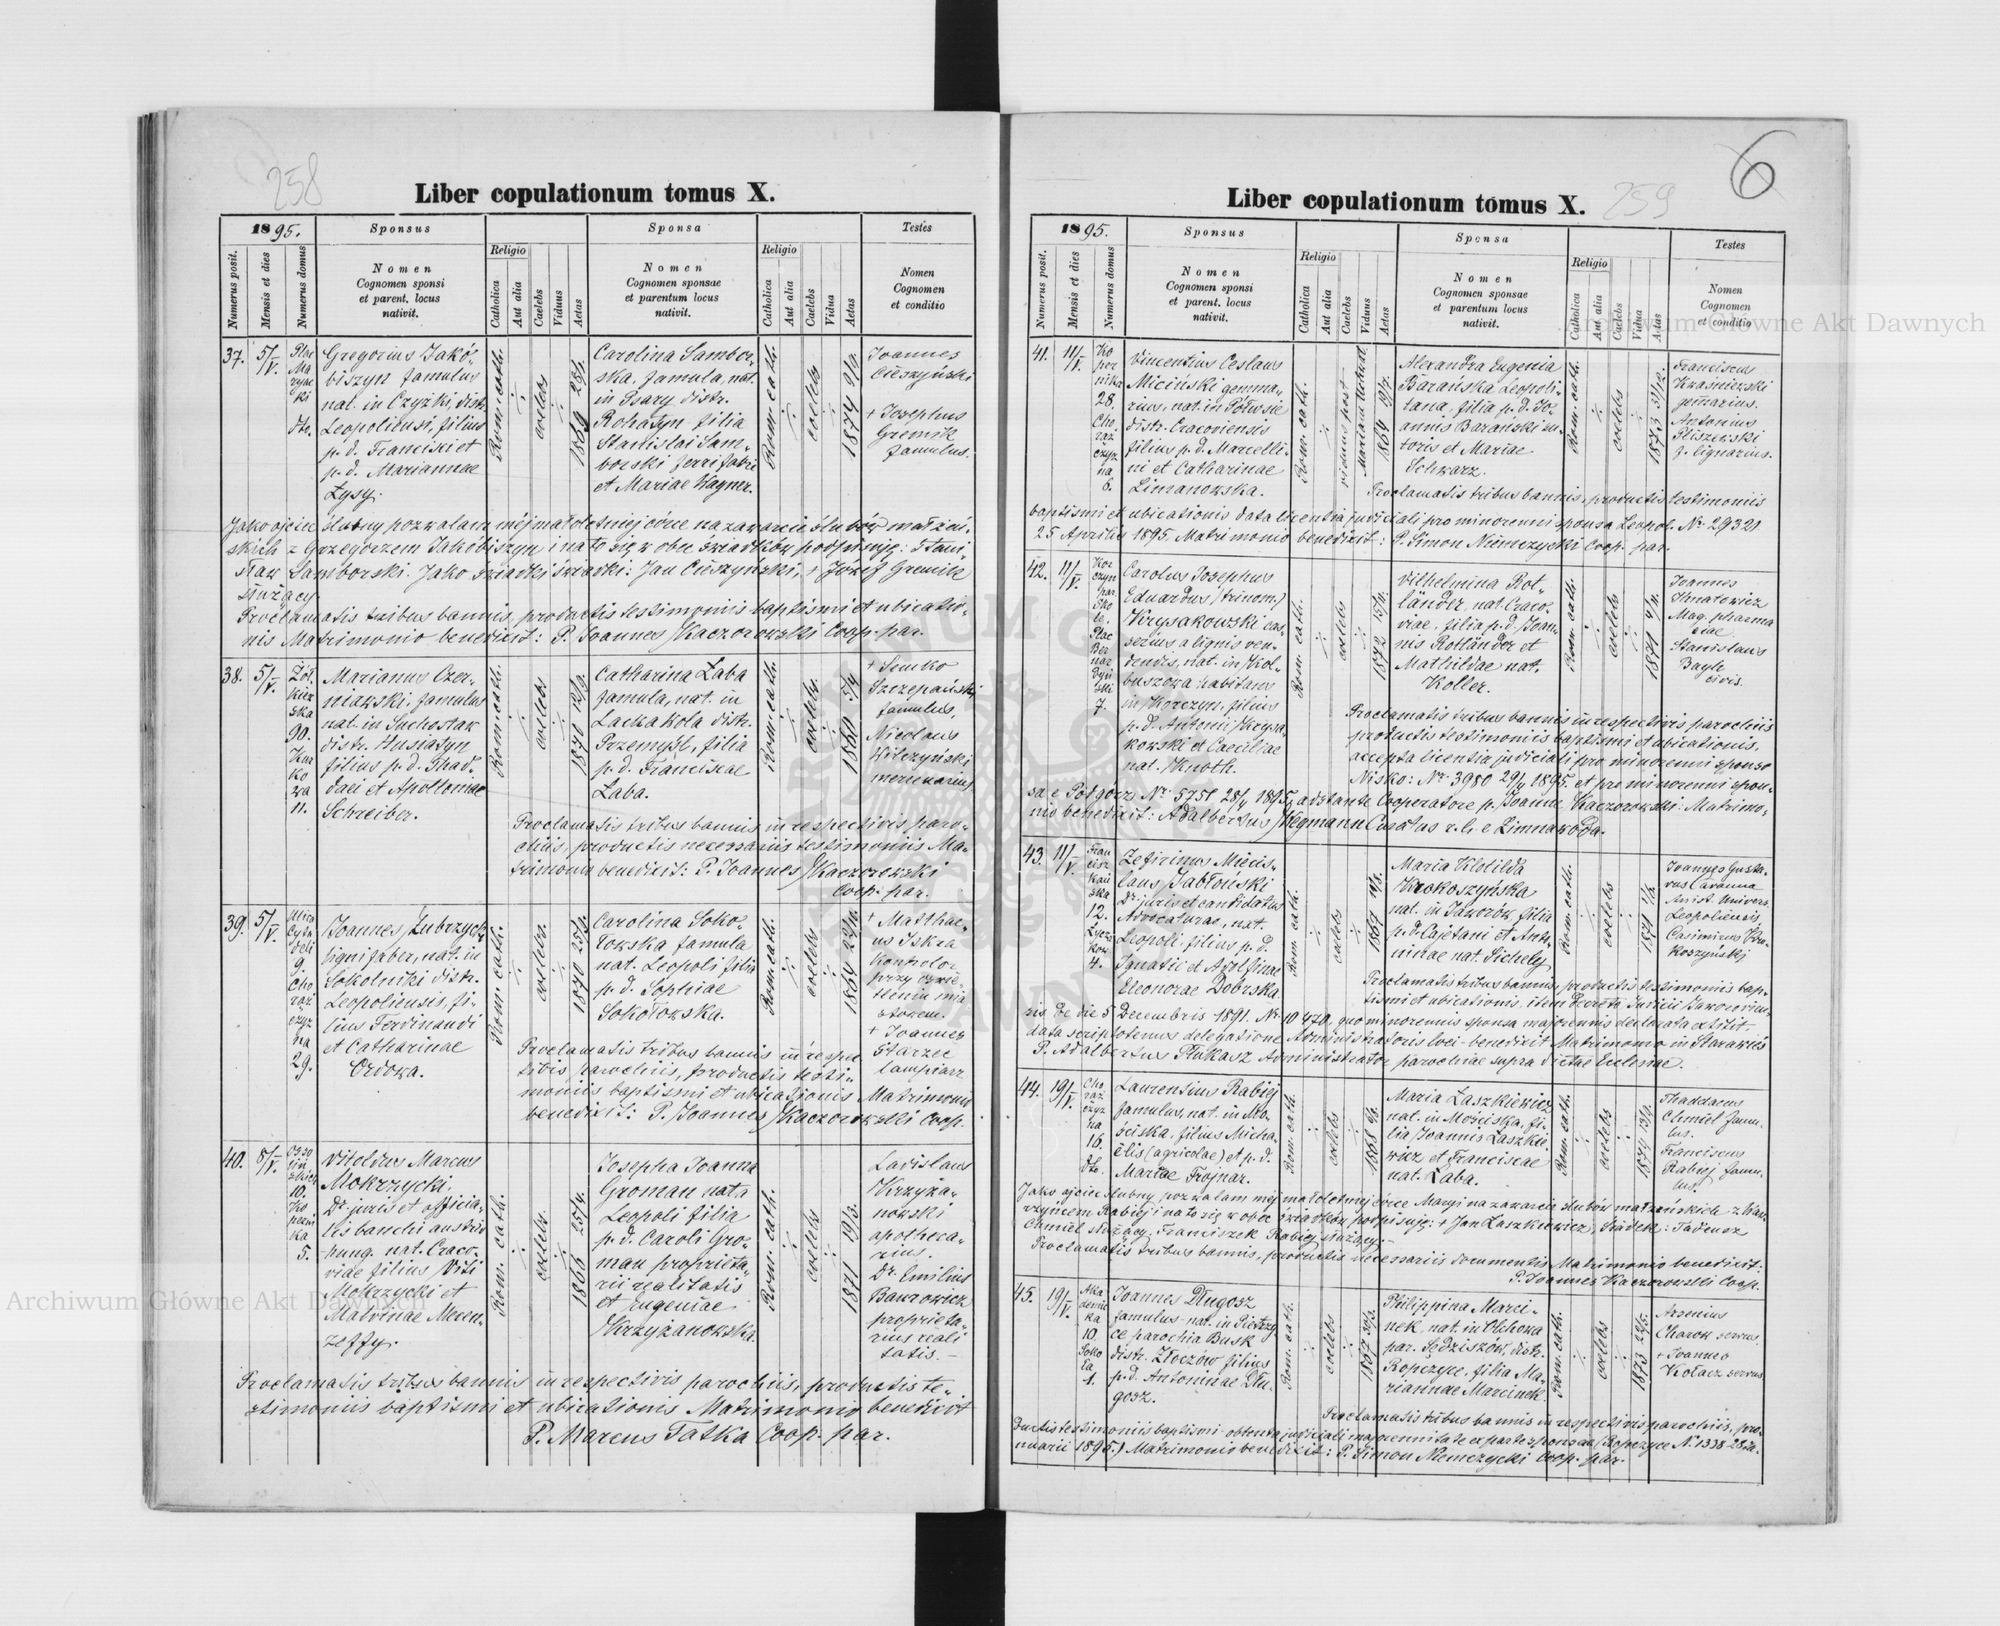 258
Liber copulationum tomus X.
1895.
Sponsus
Sponsa
Testes
Numerus posit.
Mensis et dies
Numerus domus
Nomen
Cognomen sponsi
et parent. locus
nativit.
Religio
Catholica
Aut alia
Caelebs
Viduus
Aetas
Nomen
Cognomen sponsae
et parentum locus
nativit.
Religio
Catholica
Aut alia
Caelebs
Vidua
Aetas
Nomen
Cognomen
et conditio
37.
5/V.
Plac
Ma
ryac
ki
dto.
Gregorius Jakó-
biszyn famulus
nat. in Czyżki, distr.
Leopoliensi, filius
p. d. Francisci et
p. d. Mariannae
Łysy.
Rom. cath.
coelebs
1869
Carolina Sambor-
ska, famula, nat.
in Psary distr.
Rohatyn filia
Stanislai Sam-
borski ferri fabri
et Mariae Wagner.
Rom. cath.
coelebs
1874
Joannes
Cieszyński
+ Josephus
Gremik
famulus.
Jako ojciec ślubny pozwalam mej małoletniej córce na zawarcie ślubów małżeń-
skich z Grzegorzem Jakóbiszyn i na to się w obec świadków podpisuję: Stani-
sław Samborski. Jako świadki świadki: Jan Cieszyński, + Józef Gremik
służący
Proclamatis tribus bannis, productis testimoniis baptismi et ubicatio-
nis Matrimonio benedixit: P. Joannes Kaczorowski Coop. par.
38.
5/V.
Żół
kiew
ska
90.
Kur
ko
wa
11.
Marianus Czer-
niawski, famulus
nat. in Suchostaw
distr. Husiatyn
filius p. d. Thad-
daei et Apolloniae
Schreiber.
Rom. cath.
coelebs
1870 12/9.
Catharina Łaba
famula, nat. in
Lackawola distr.
Przemyśl, filia
p. d. Franciscae
Łaba.
Rom. cath.
coelebs
1860
+ Semko
Szczepański
famulus,
Nicolaus
Wilczyński
mercenarius
Proclamatis tribus bannis in respectivis paro-
chiis, productis necessariis testimoniis Ma-
trimonio benedixit: P. Joannes Kaczorowski
Coop. par.
39.
5/V.
Ulica
Cyta
deli
9
Cho
rąż
czyz
na
29.
Joannes Zubrzycki
lignifaber, nat. in
Sokolniki distr.
Leopoliensis, fi-
lius Ferdinandi
et Catharinae
Ordowa.
Rom. cath.
coelebs
1870
Carolina Soko-
łowska famula
nat. Leopoli filia
p. d. Sophiae
Sokołowska.
Rom. cath.
coelebs
1864
+ Matthae-
us Iskra
Kontrolor
przy oświe-
tleniu mia
stowem.
+ Joannes
Starzec
lampiarz
Proclamatis tribus bannis in respec
tivis parochiis, productis testi-
moniis baptismi et ubicationis Matrimonio
benedixit: P. Joannes Kaczorowski Coop.
40.
5/V.
Osso
liń
skich
10.
Ko
perni
ka
5.
Vitoldus Marcus
Mokrzycki,
Dr. juris et officia-
lis banchi austriao
hung. nat. Craco-
viae filius Viti
Mokrzycki et
Malvinae Meren-
zeffy.
Rom. cath.
coelebs.
1866 25/4.
Josepha Joanna
Groman nata
Leopoli filia
p. d. Caroli Gro-
man proprieta-
rii realitatis
et Eugeniae
Krzyżanowska.
Rom. cath.
coelebs
1871 19/3.
Ladislaus
Krzyża-
nowski
apotheca-
rius.
Dr. Emilius
Baurowicz
proprieta-
rius reali
tatis.
Proclamatis tribus bannis in respectivis parochiis, productis te-
stimoniis baptismi et ubicationis Matrimonio benedixit
P. Marcus Tatka Coop. par.
6
259
Liber copulationum tomus X.
1895.
Sponsus
Sponsa
Testes
Numerus posit.
Mensis et dies
Numerus domus
Nomen
Cognomen sponsi
et parent. locus
nativit.
Religio
Catholica
Aut alia
Caelebs
Viduus
Aetas
Nomen
Cognomen sponsae
et parentum locus
nativit.
Religio
Catholica
Aut alia
Caelebs
Vidua
Aetas
Nomen
Cognomen
et conditio
41.
11/V.
Ko
per
nika
28.
Cho
rąż
czyz
na
6.
Vincentius Ceslaus
Miciński gemma-
rius, nat. in Półwsie
distr. Cracoviensis
filius p. d. Marcelli-
ni et Catharinae
Limanowska.
Rom. cath.
viduus post
1864 19/7.
Alexandra Eugenia
Barańska Leopoli-
tana, filia p. d. Jo-
annis Barański su-
toris et Mariae
Schwarz.
Rom. cath.
coelebs
1873 31/12.
Franciscus
Kraśniewski
gemmarius.
Antonius
Pliszewski
f. lignarius.
Proclamatis tribus bannis, productis testimoniis
baptismi et ubicationis data licentia judiciali pro minorenni sponsa Leopol. Nr. 29321.
25 Aprilis 1895. Matrimonio benedixit: P. Simon Niemczycki Coop. par.
42.
11/V.
Kor
czyn
par.
Sko
le.
Plac
Ber
nar
dyń
ski
7.
Carolus Josephus
Eduardus (trinom.)
Krysakowski cas-
serius a lignis ven-
dendis, nat. in Kol-
buszowa habitans
in Korczyn, filius
p. d. Antonii Krysa-
kowski et Caeciliae
nat. Knoth.
Rom. cath.
coelebs
1872
Vilhelmina Rot-
länder, nat. Craco-
viae, filia p. d. Joan-
nis Rotländer et
Mathildae nat.
Koller.
Rom. cath.
coelebs
1871
Joannes
Ihnatowicz
Mag. pharma
ciae.
Stanislaus
Bayli
civis.
Proclamatis tribus bannis in respectivis parochiis
productis testimoniis baptismi et ubicationis,
accepta licentia judiciali pro minorenni sponso
Nisko: Nr. 3980 29/4 1895. et pro minorenni spon-
sa e Podgórz Nr. 5751 28/4 1895, adstante Cooperatore p. Joanne Kaczorowski. Matrimo-
nio benedixit: Adalbertus Wegmann Curatus r. l. e Zimnawoda.
43.
11/V.
Fran
cisz
kań
ska
12.
Łycza
kow
4.
Zefirinus Miecis-
laus Jabłoński
Dr. juris et candidatus
Advocaturae, nat.
Leopoli, filius p. d.
Ignatii et Adolfinae
Eleonorae Dobrska
Rom. cath.
coelebs
1867
Maria Klotilda
Krokoszyńska
nat. in Jaworów filia
p. d. Cajetani et Anto-
ninae nat. Pichely
Rom. cath.
coelebs
1871
Joannes Gusta-
vus Caranna
Assist. Univers.
Leopoliensis,
Casimirus Kro-
koszyński
Proclamatis tribus bannis, productis testimoniis bap-
tismi et ubicationis, item Decreto Judicii Jaworovien-
sis de die 5 Decembris 1891. Nr. 10470, quo minorennis sponsa majorennis declarata extitit-
data scriptotenus delegatione Administratoris loci- benedixit Matrimonio in Starawieś
P. Adalbertus Tłukasz Administrator parochiae supra dictae Ecclesiae.
44.
19/V.
Cho
rąż
czyz
na
16.
dto.
Laurentius Rabiej
famulus, nat. in Mo-
ściska, filius Micha-
elis (agricolae) et p. d.
Mariae Trojnar.
Rom. cath.
coelebs
1868
Maria Laszkiewicz
nat. in Mościska, fi-
lia Joannis Laszkie
wicz et Franciscae
nat. Łaba.
Rom. cath.
coelebs
1874
Thaddaeus
Chmiel famu-
lus.
Franciscus
Rabiej famu-
lus.
Jako ojciec ślubny, pozwalam mej małoletniej córce Maryi na zawarcie ślubów małżeńskich z Waw-
rzyńcem Rabiej i na to się w obec świadków podpisuję: + Jan Laszkiewicz, Świadek: Tadeusz
Chmiel służący, Franciszek Rabiej służący.
Proclamatis tribus bannis, productis necessariis documentis Matrimonio benedixit:
P. Joannes Kaczorowski Coop.
45.
19/V.
Aka
demic
ka
10.
Soko
ła
1.
Joannes Długosz
famulus- nat. in Pietrzy
ce parochia Busk
distr. Złoczów filius
p. d. Antoninae Dłu-
gosz.
Rom. cath.
coelebs
1867
Philippina Marci-
nek, nat. in Olchowa
par. Sędziszów, distr.
Ropczyce, filia Ma-
riannae Marcinek.
Rom. cath.
coelebs
1873
Arsenius
Charow servus
+ Joannes
Kołacz servus
Proclamatis tribus bannis in respectivis parochiis, pro-
ductis testimoniis baptismi- obtenta judiciali majorennitate ex parte sponsae (Ropczyce N. 1338 28 Ja-
nuarii 1895.) Matrimonio benedixit: P. Simon Niemczycki Coop. par.
Archiwum Główne Akt Dawnych
Archiwum Główne Akt Dawnych